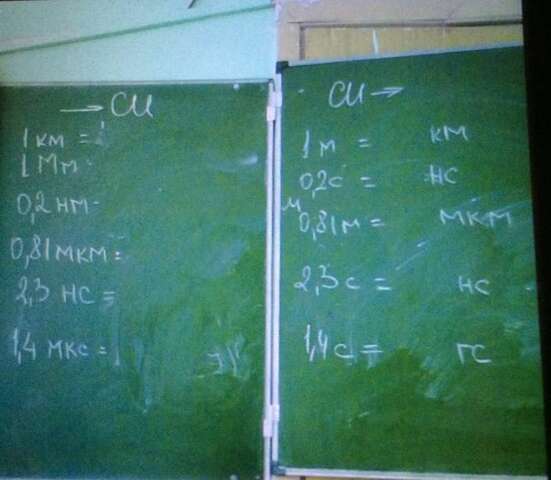 → СИ
1 км =
1 Мм
0,2 нм
0,81 мкм =
2,3 нс =
1,4 мкс =
СИ →
1 м = км
0,2 с = нс
0,81 м = мкм
2,3 с = нс
1,4 с = гс